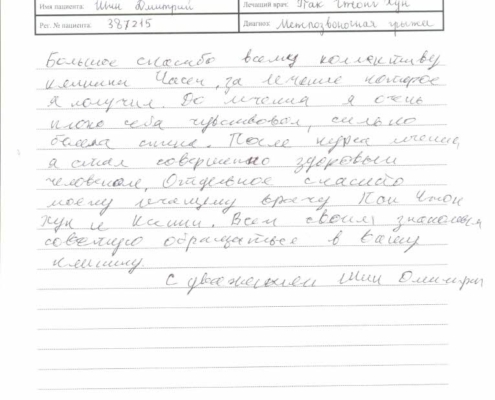 Имя пациента: Шин Дмитрий Лечащий врач: Пак Чжонг Хун
Рег. № пациента: 387215 Диагноз: Межпозвоночная грыжа
Большое спасибо всему коллективу
клиники Часен, за лечение которое
я получил. До лечения я очень
плохо себя чувствовал, сильно
болела спина. После курса лечения,
я стал совершенно здоровым
человеком, Отдельное спасибо
моему лечащему врачу Пак Чжон
Хун и Ксении. Всем своим знакомым
советую обращаться в вашу
клинику.
С уважением Шин Дмитрий